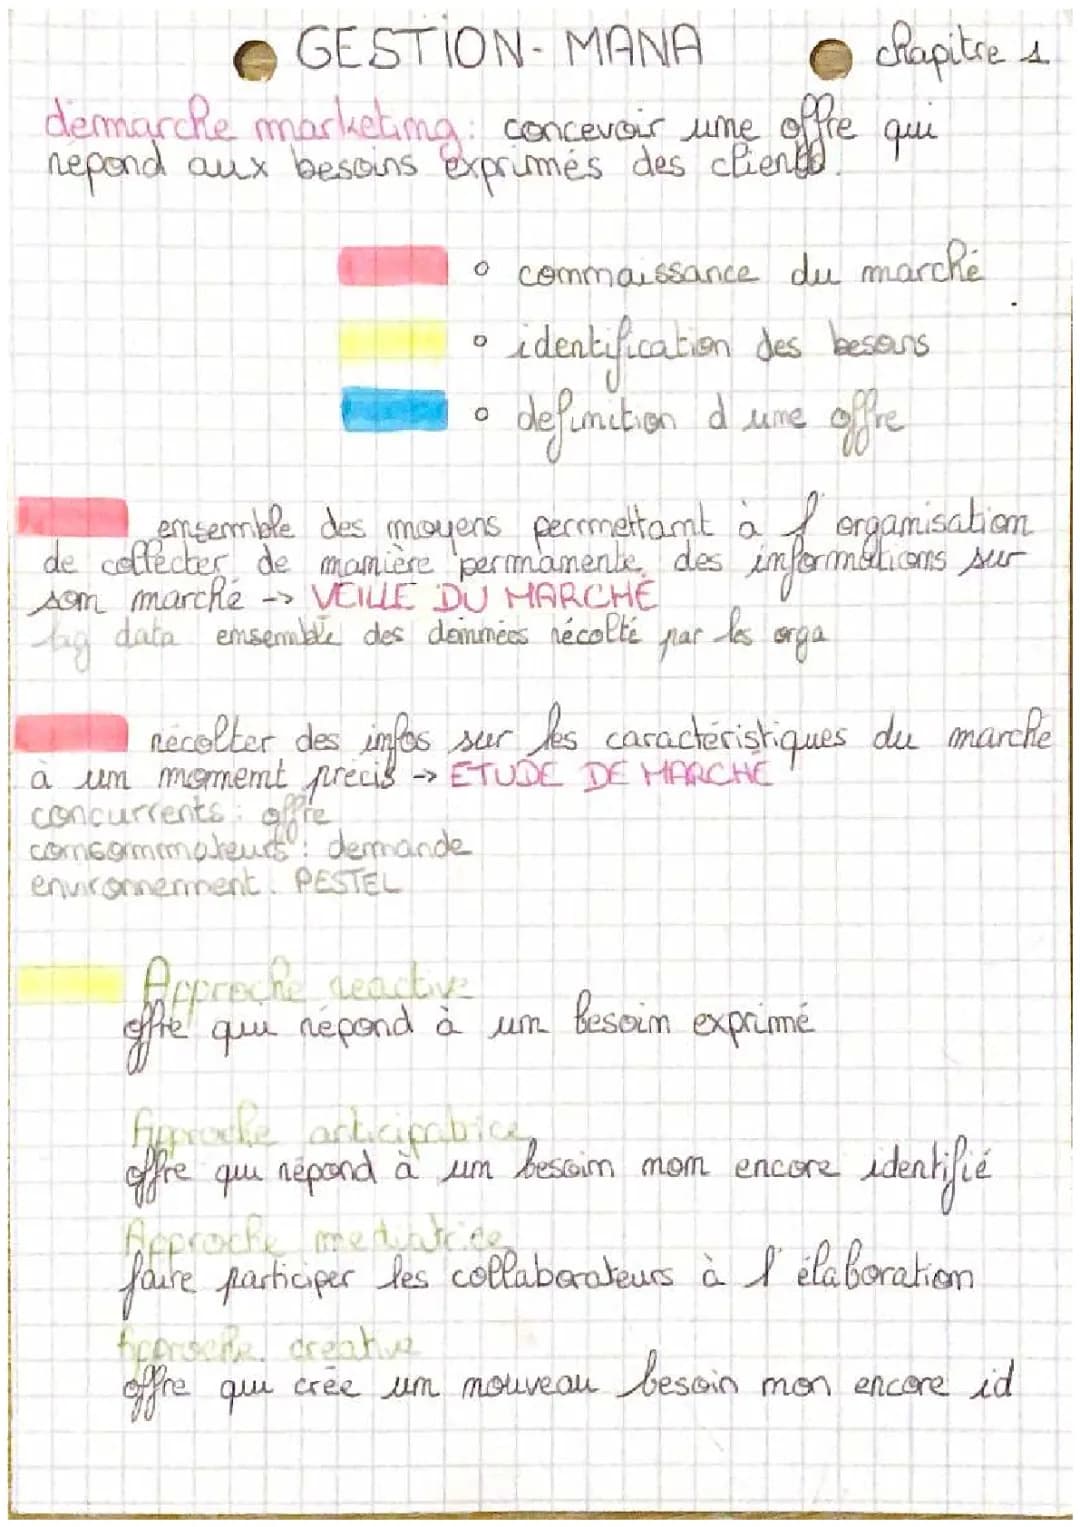 GESTION - MANA
chapitre 1
démarche marketing : concevoir une offre qui
répond aux besoins exprimés des clients.
connaissance du marché
identification des besoins
définition d une offre
ensemble des moyens permettant à l'organisation
de collecter de manière permanente des informations sur
son marché -> VEILLE DU MARCHÉ
big data ensemble des données récolté par les orga
récolter des infos sur les caractéristiques du marché
à un moment précis -> ETUDE DE MARCHÉ
concurrents : offre
consommateurs : demande
environnement : PESTEL
Approche reactive
offre qui répond à un besoin exprimé
Approche anticipatrice
offre qui répond à un besoin non encore identifié
Approche mediatrice
faire participer les collaborateurs à l'élaboration
Approche creative
offre qui crée un nouveau besoin non encore id